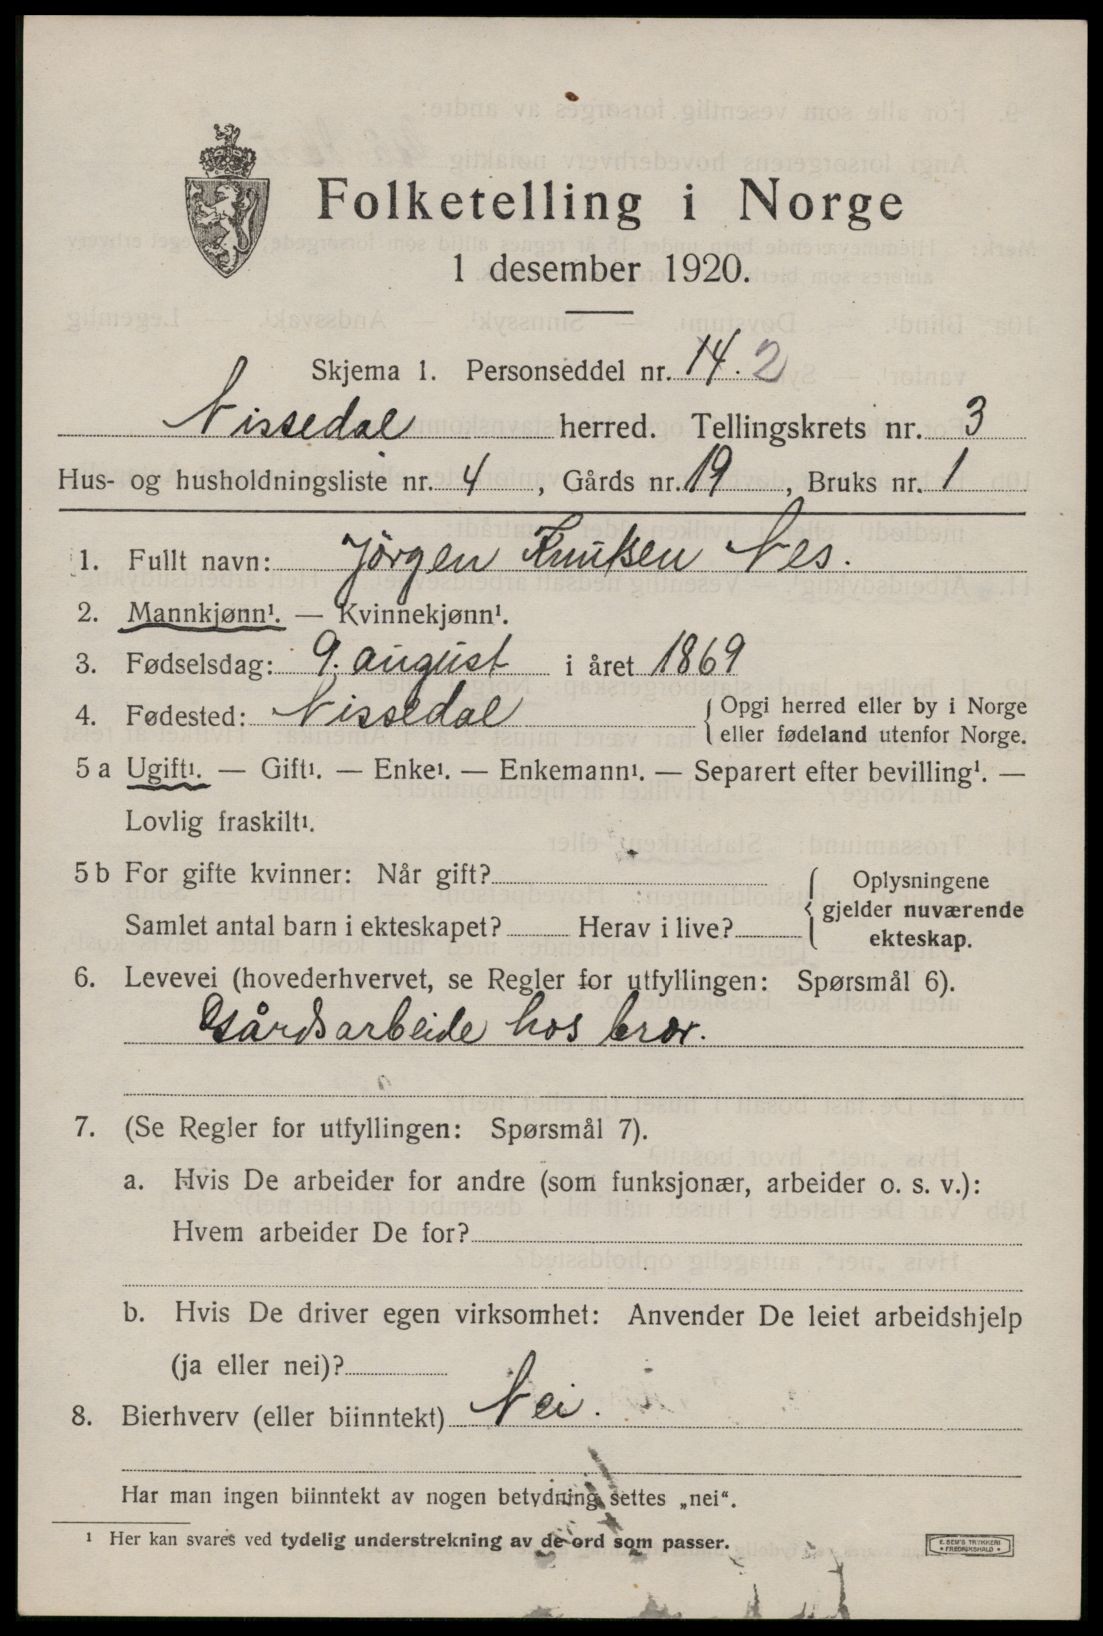 Folketelling i Norge
1 desember 1920.
Skjema 1. Personseddel nr. 14. 2
Nissedal herred. Tellingskrets nr. 3
Hus- og husholdningsliste nr. 4, Gårds nr. 19, Bruks nr. 1
1. Fullt navn: Jörgen Knutsen Nes.
2. Mannkjønn¹. — Kvinnekjønn¹.
3. Fødselsdag: 9. august i året 1869
4. Fødested: Nissedal { Opgi herred eller by i Norge
eller fødeland utenfor Norge.
5 a Ugift¹. — Gift¹. — Enke¹. — Enkemann¹. — Separert efter bevilling¹. —
Lovlig fraskilt¹.
5 b For gifte kvinner: Når gift? { Oplysningene
gjelder nuværende
Samlet antal barn i ekteskapet? Herav i live?
ekteskap.
6. Levevei (hovederhvervet, se Regler for utfyllingen: Spørsmål 6).
Gårdsarbeide hos bror.
7. (Se Regler for utfyllingen: Spørsmål 7).
a. Hvis De arbeider for andre (som funksjonær, arbeider o. s. v.):
Hvem arbeider De for?
b. Hvis De driver egen virksomhet: Anvender De leiet arbeidshjelp
(ja eller nei)?
8. Bierhverv (eller biinntekt) Nei.
Har man ingen biinntekt av nogen betydning settes „nei“.
¹ Her kan svares ved tydelig understrekning av de ord som passer.
E. SEM'S TRYKKERI
• FREDRIKSHALD •